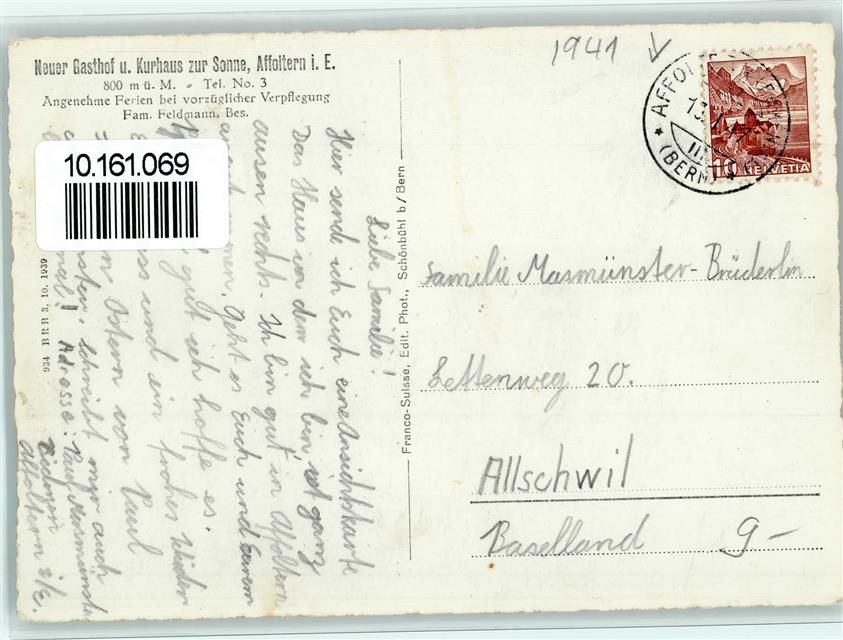 Neuer Gasthof u. Kurhaus zur Sonne, Affoltern i. E.
800 m ü. M. - Tel. No. 3
Angenehme Ferien bei vorzüglicher Verpflegung
Fam. Feldmann, Bes.
10.161.069
934 BRB 3. 10. 1939
Franco-Suisse, Edit. Phot., Schönbühl b/Bern
1941
AFFOLTERN
(BERN)
10 HELVETIA
Liebe Familie!
Hier sende ich Euch eine Ansichtskarte
Das Haus in dem ich bin, ist ganz
aussen rechts. Ich bin gut in Affoltern
Geht es Euch und Eurem
gut ich hoffe es.
und ein frohes Wieder
Ostern von Paul
schreibt mir auch
! Adresse: Paul Masmünster
Affoltern i/E.
Familie Masmünster-Brüderlin
Lettenweg 20.
Allschwil
Baselland
9-